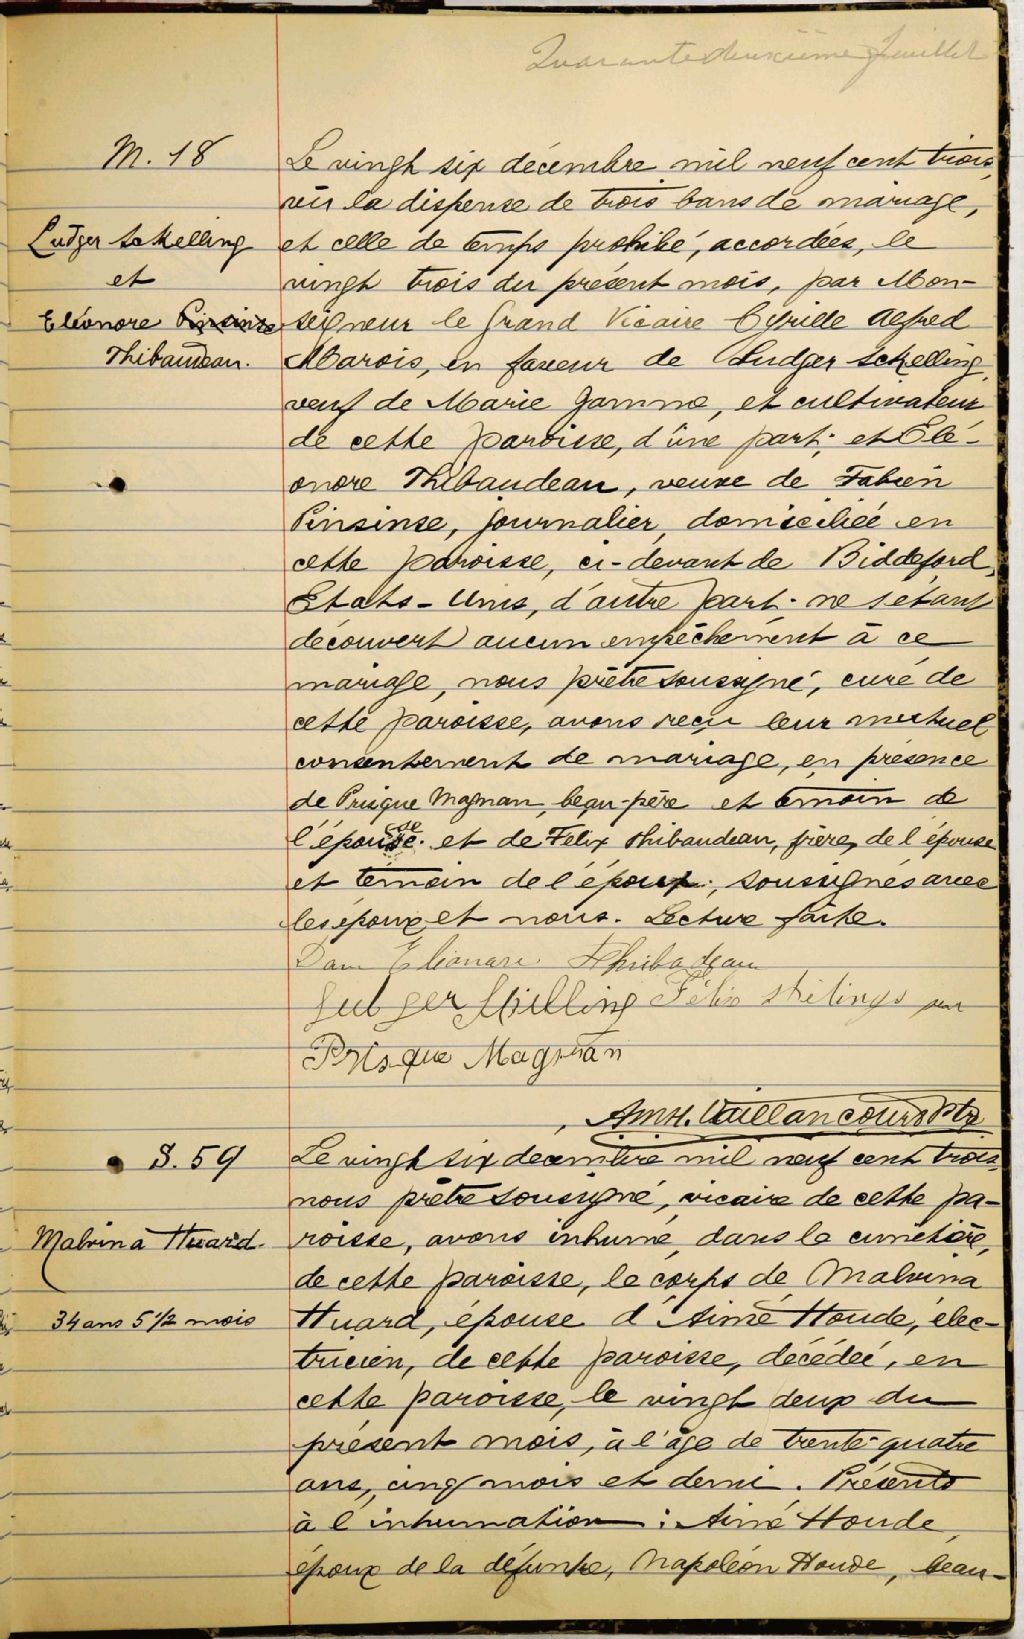 Quarante deuxième feuillet
M. 18
Ludger Schelling
et
Eléonore Pinsinse
Thibaudeau.
Le vingt six décembre mil neuf cent trois,
vu la dispense de trois bans de mariage,
et celle de temps prohibé, accordées, le
vingt trois du présent mois, par Mon-
seigneur le Grand Vicaire Cyrille Alfred
Marois, en faveur de Ludger Schelling,
veuf de Marie Gamme, et cultivateur
de cette paroisse, d'une part; et Elé-
onore Thibaudeau, veuve de Fabien
Pinsinse, journalier, domiciliée en
cette paroisse, ci-devant de Biddeford,
Etats-Unis, d'autre part; ne s'étant
découvert aucun empêchement à ce
mariage, nous prêtre soussigné, curé de
cette paroisse, avons reçu leur mutuel
consentement de mariage, en présence
de Prisque Magnan, beau-père et témoin de
l'épouse et de Félix Thibaudeau, frère, de l'épouse
et témoin de l'époux, soussignés avec
les époux et nous. Lecture faite.
Dam Elionare Thibadeau
Ludger Skilling Félix
Prisque Magnan
Am H. Vaillancourt Ptr
S. 59
Malvina Huard.
34 ans 5 1/2 mois
Le vingt six decembre mil neuf cent trois,
nous prêtre soussigné, vicaire de cette pa-
roisse, avons inhumé, dans le cimetière,
de cette paroisse, le corps de Malvina
Huard, épouse d'Aimé Houde, élec-
tricien, de cette paroisse, décédée, en
cette paroisse, le vingt deux du
présent mois, à l'âge de trente-quatre
ans, cinq mois et demi. Présents
à l'inhumation : Aimé Houde,
époux de la défunte, Napoléon Houde, beau-